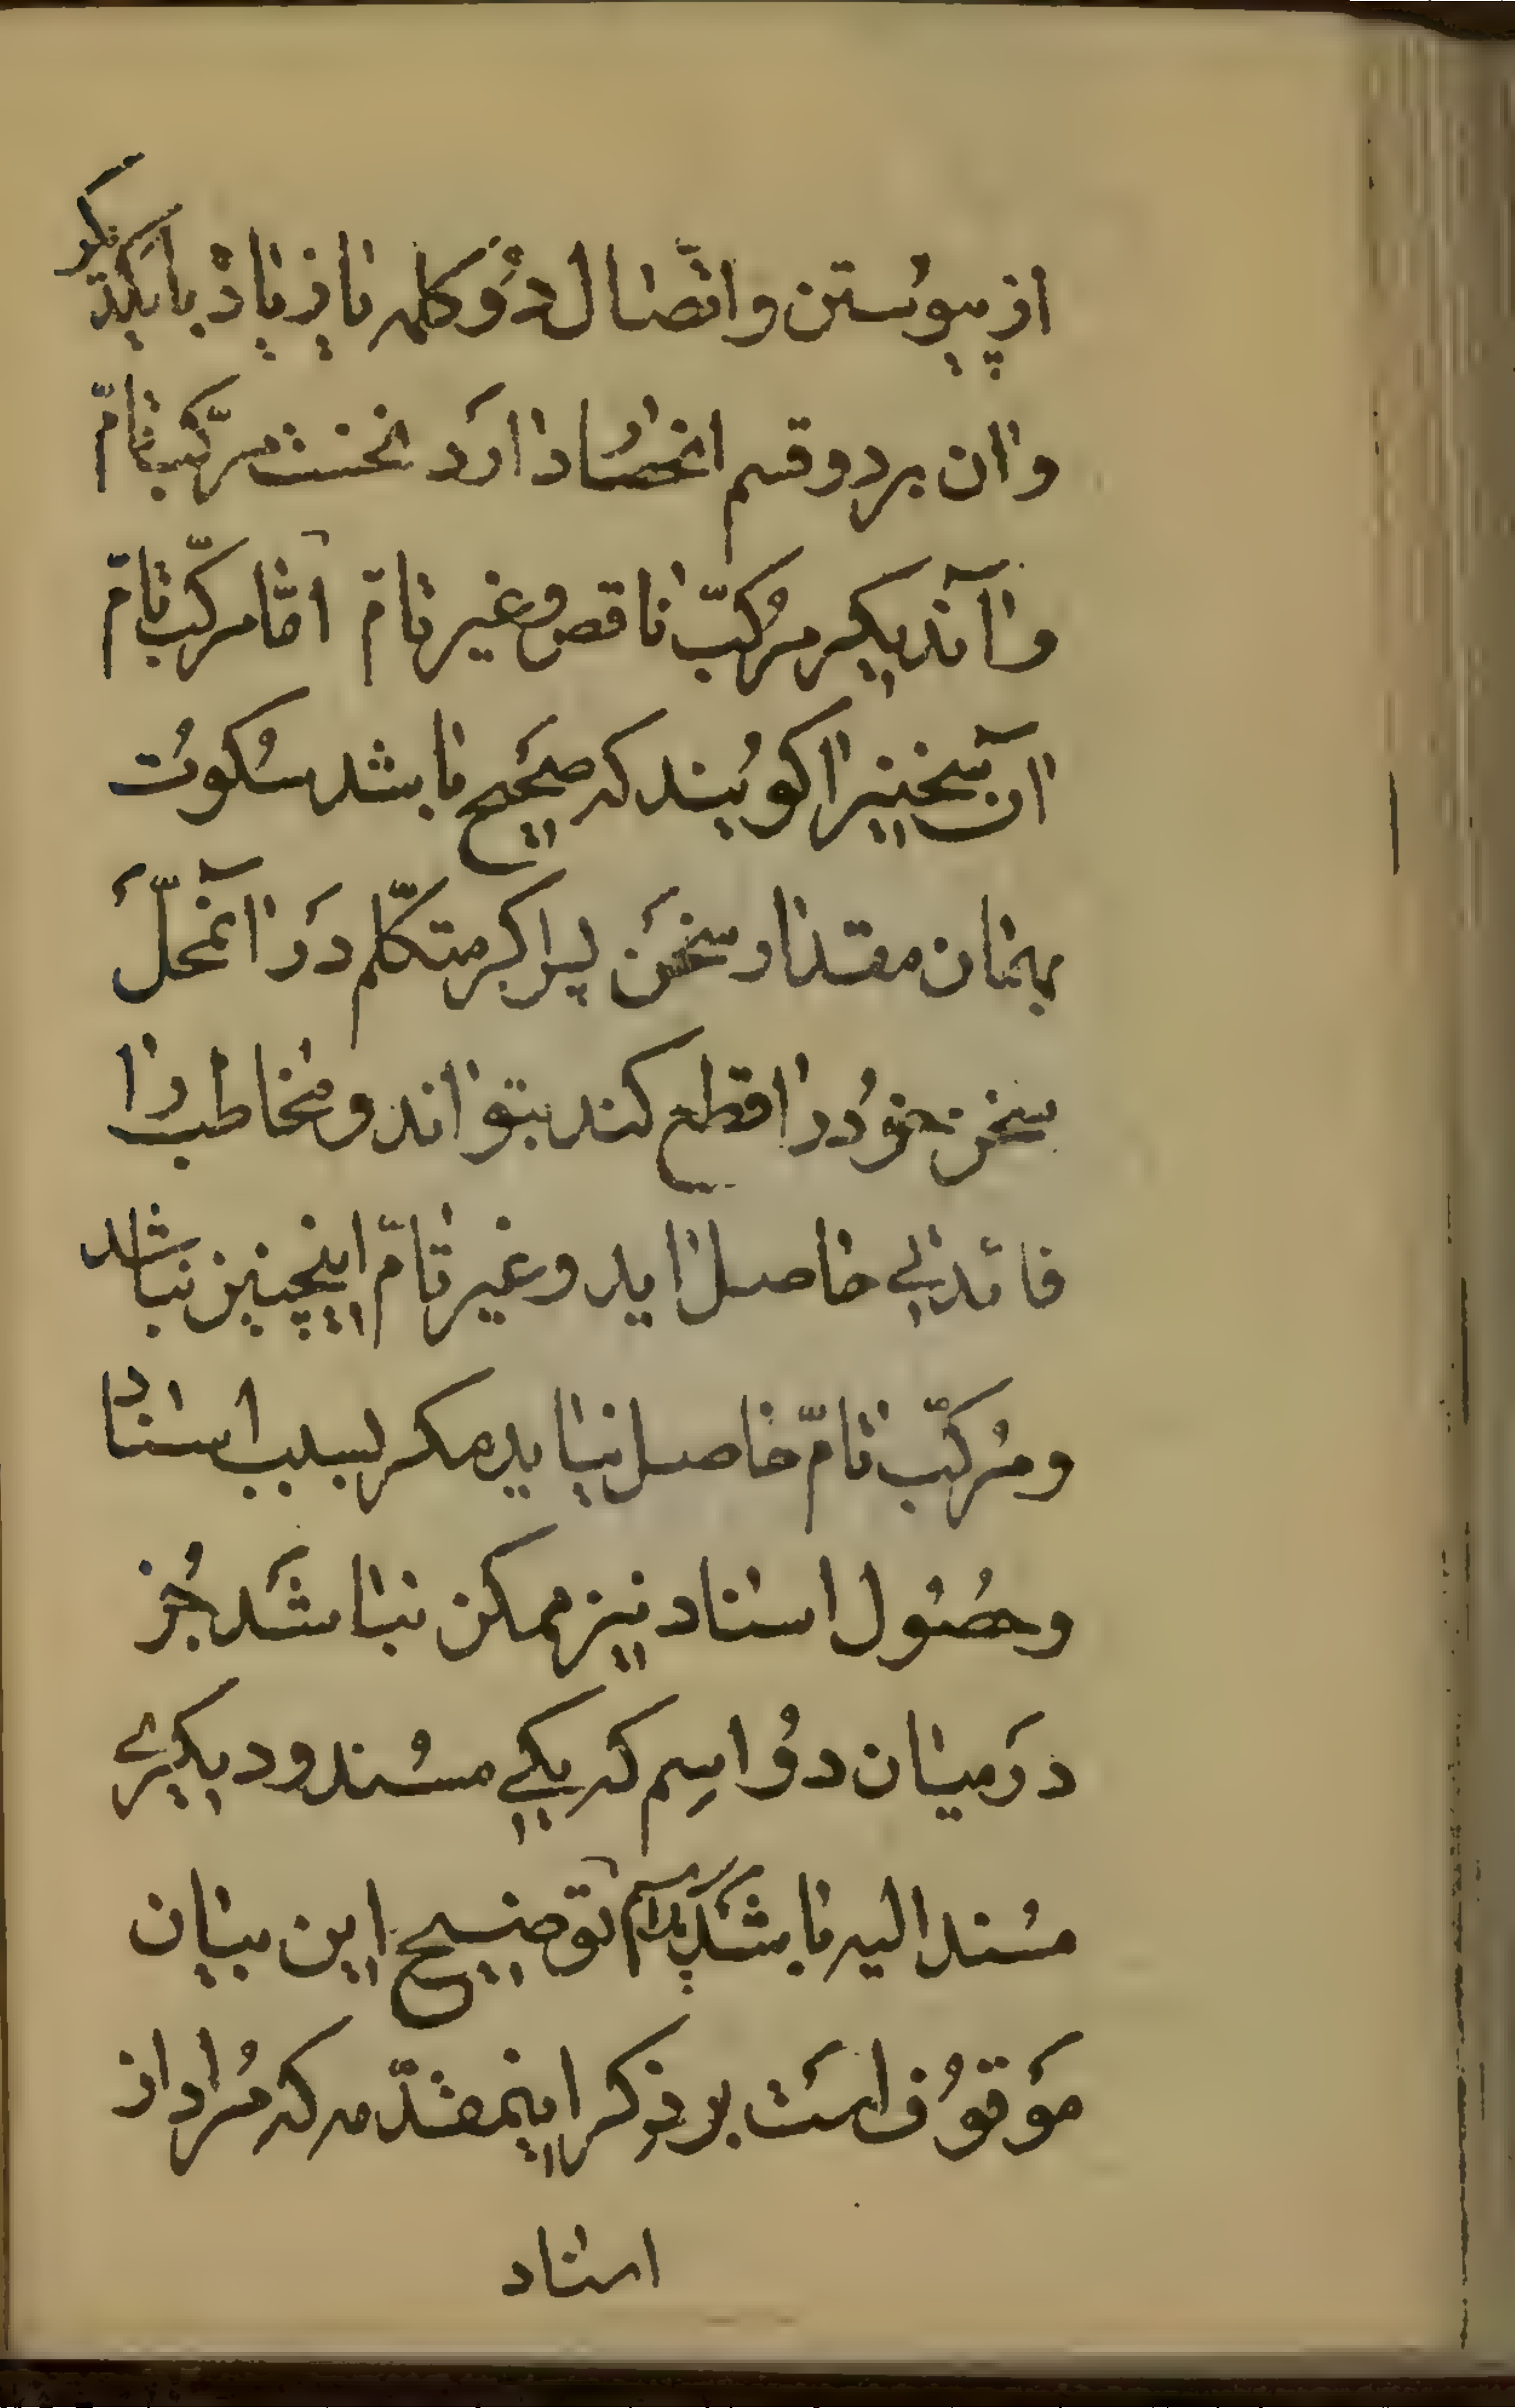 از پیوستن و اتّصال دُو کلمه یا زیاد با یکدیکر
و آن بر دو قسم انحصار دارد نخست مرکّب تامّ
و آندیکر مُرکّب ناقص و غیر تامّ امّا مرکّب تامّ
آن سخنیرا کویُند که صَحیح باشد سُکوُت
بهمان مقدار سخَن پس اکر متکّلم دَر آنمحلّ
سخن خوُد را قطع کند بتواند و مخاطب را
فائدۀ حاصل آید و غیر تامّ اینچنین نباشد
و مُرکّب تامّ حاصل نیاید مکر بسبب اسناد
و حصُول اسناد نیز ممکن نباشَد جُز
دَر میان دوُ اسِم که یکی مسُند و دیکری
مسُند الیه باشَد توضیح این بیان
مَوقوُف استَ بر ذِکر اینمقدّمه که مُراد از
اسناد